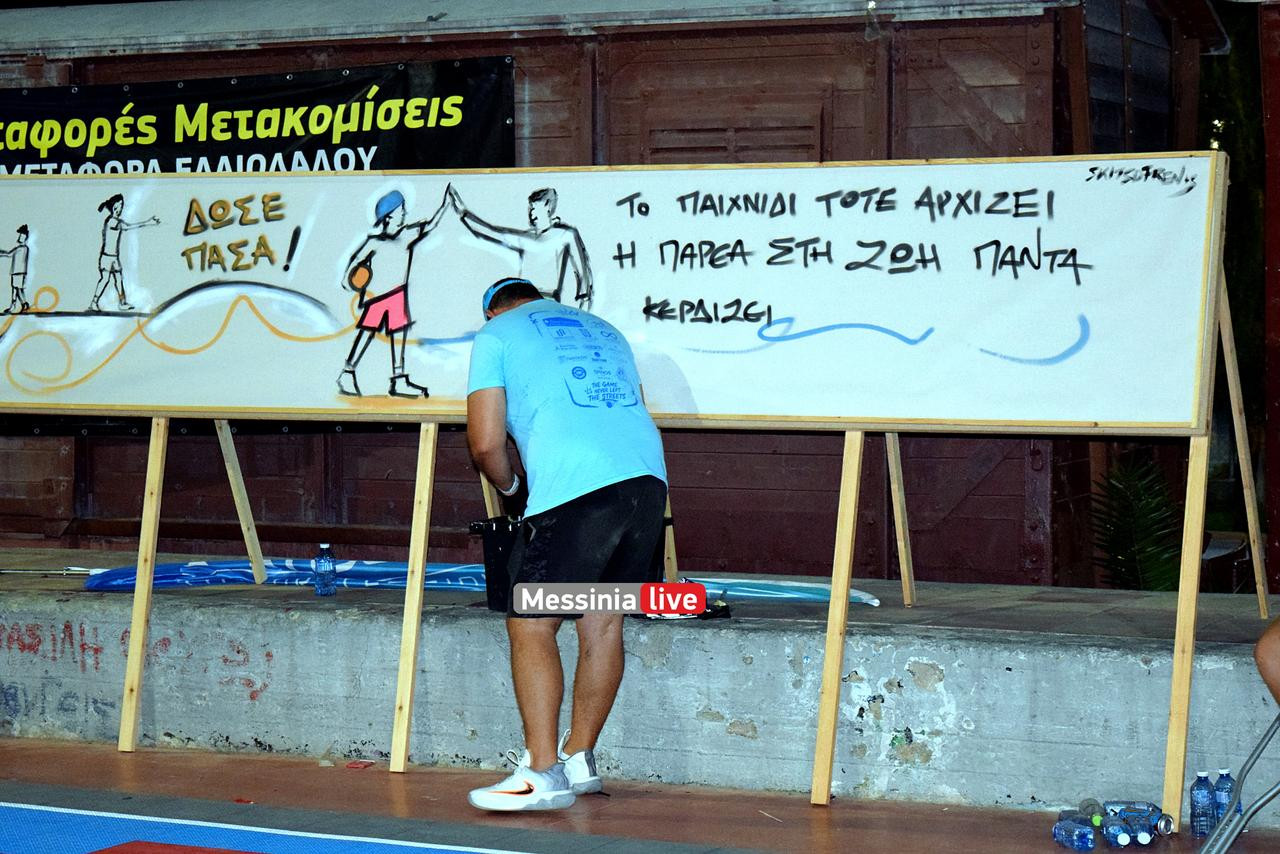 ταφορές Μετακομίσεις
ΜΕΤΑΦΟΡΑ ΕΛΑΙΟΛΑΔΟΥ
ΔΩΣΕ
ΠΑΣΑ!
Το ΠΑΙΧΝΙΔΙ ΤΟΤΕ ΑΡΧΙΖΕΙ
Η ΠΑΡΕΑ ΣΤΗ ΖΩΗ ΠΑΝΤΑ
ΚΕΡΔΙΖΕΙ
THE GAME
NEVER LEFT
THE STREETS
Messinia live